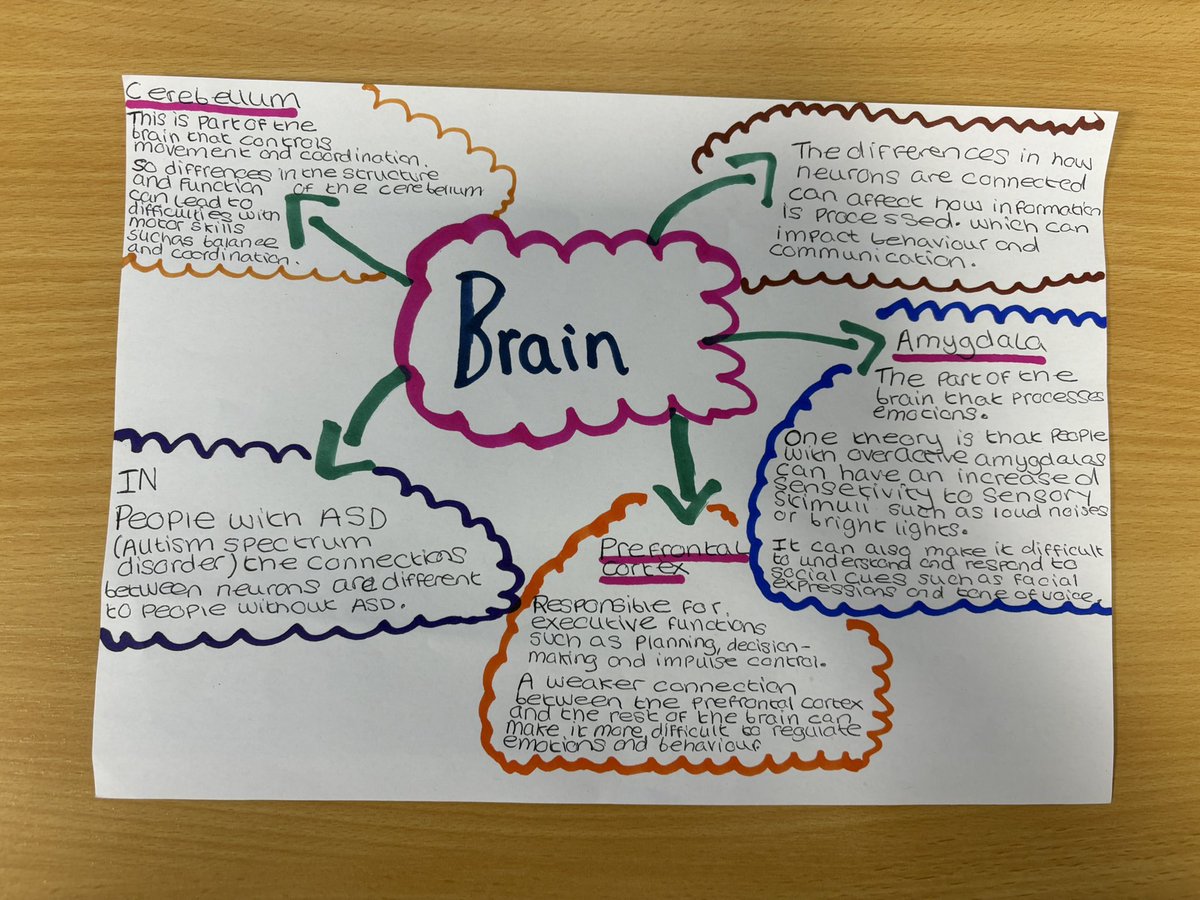 Cerebellum
This is part of the
brain that controls
movement and coordination.
So differences in the structure
and function of the cerebellum
can lead to
difficulties with
motor skills
such as balance
and coordination.
The differences in how
neurons are connected
can affect how information
is processed. which can
impact behaviour and
communication.
Brain
Amygdala
The part of the
brain that processes
emotions.
One theory is that people
with overactive amygdalas
can have an increased
sensetivity to sensory
stimuli such as loud noises
or bright lights.
It can also make it difficult
to understand and respond to
social cues such as facial
expressions and tone of voice.
IN
People with ASD
(Autism spectrum
disorder) the connections
between neurons are different
to people without ASD.
Prefrontal
cortex
Responsible for
executive functions
such as planning, decision-
making and impulse control.
A weaker connection
between the prefrontal cortex
and the rest of the brain can
make it more difficult to regulate
emotions and behaviour